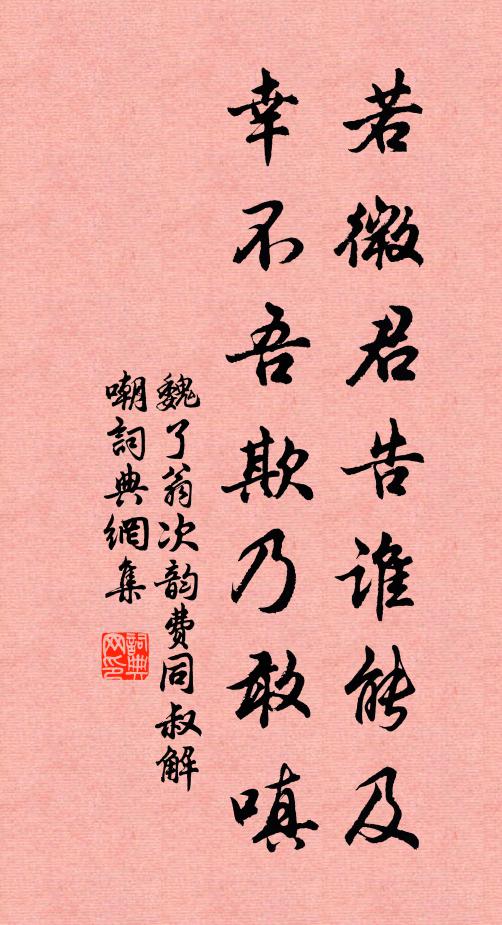 若微君告谁能及
幸不吾欺乃敢嗔
魏了翁次韵费同叔解
嘲词典網集
詞典
网印